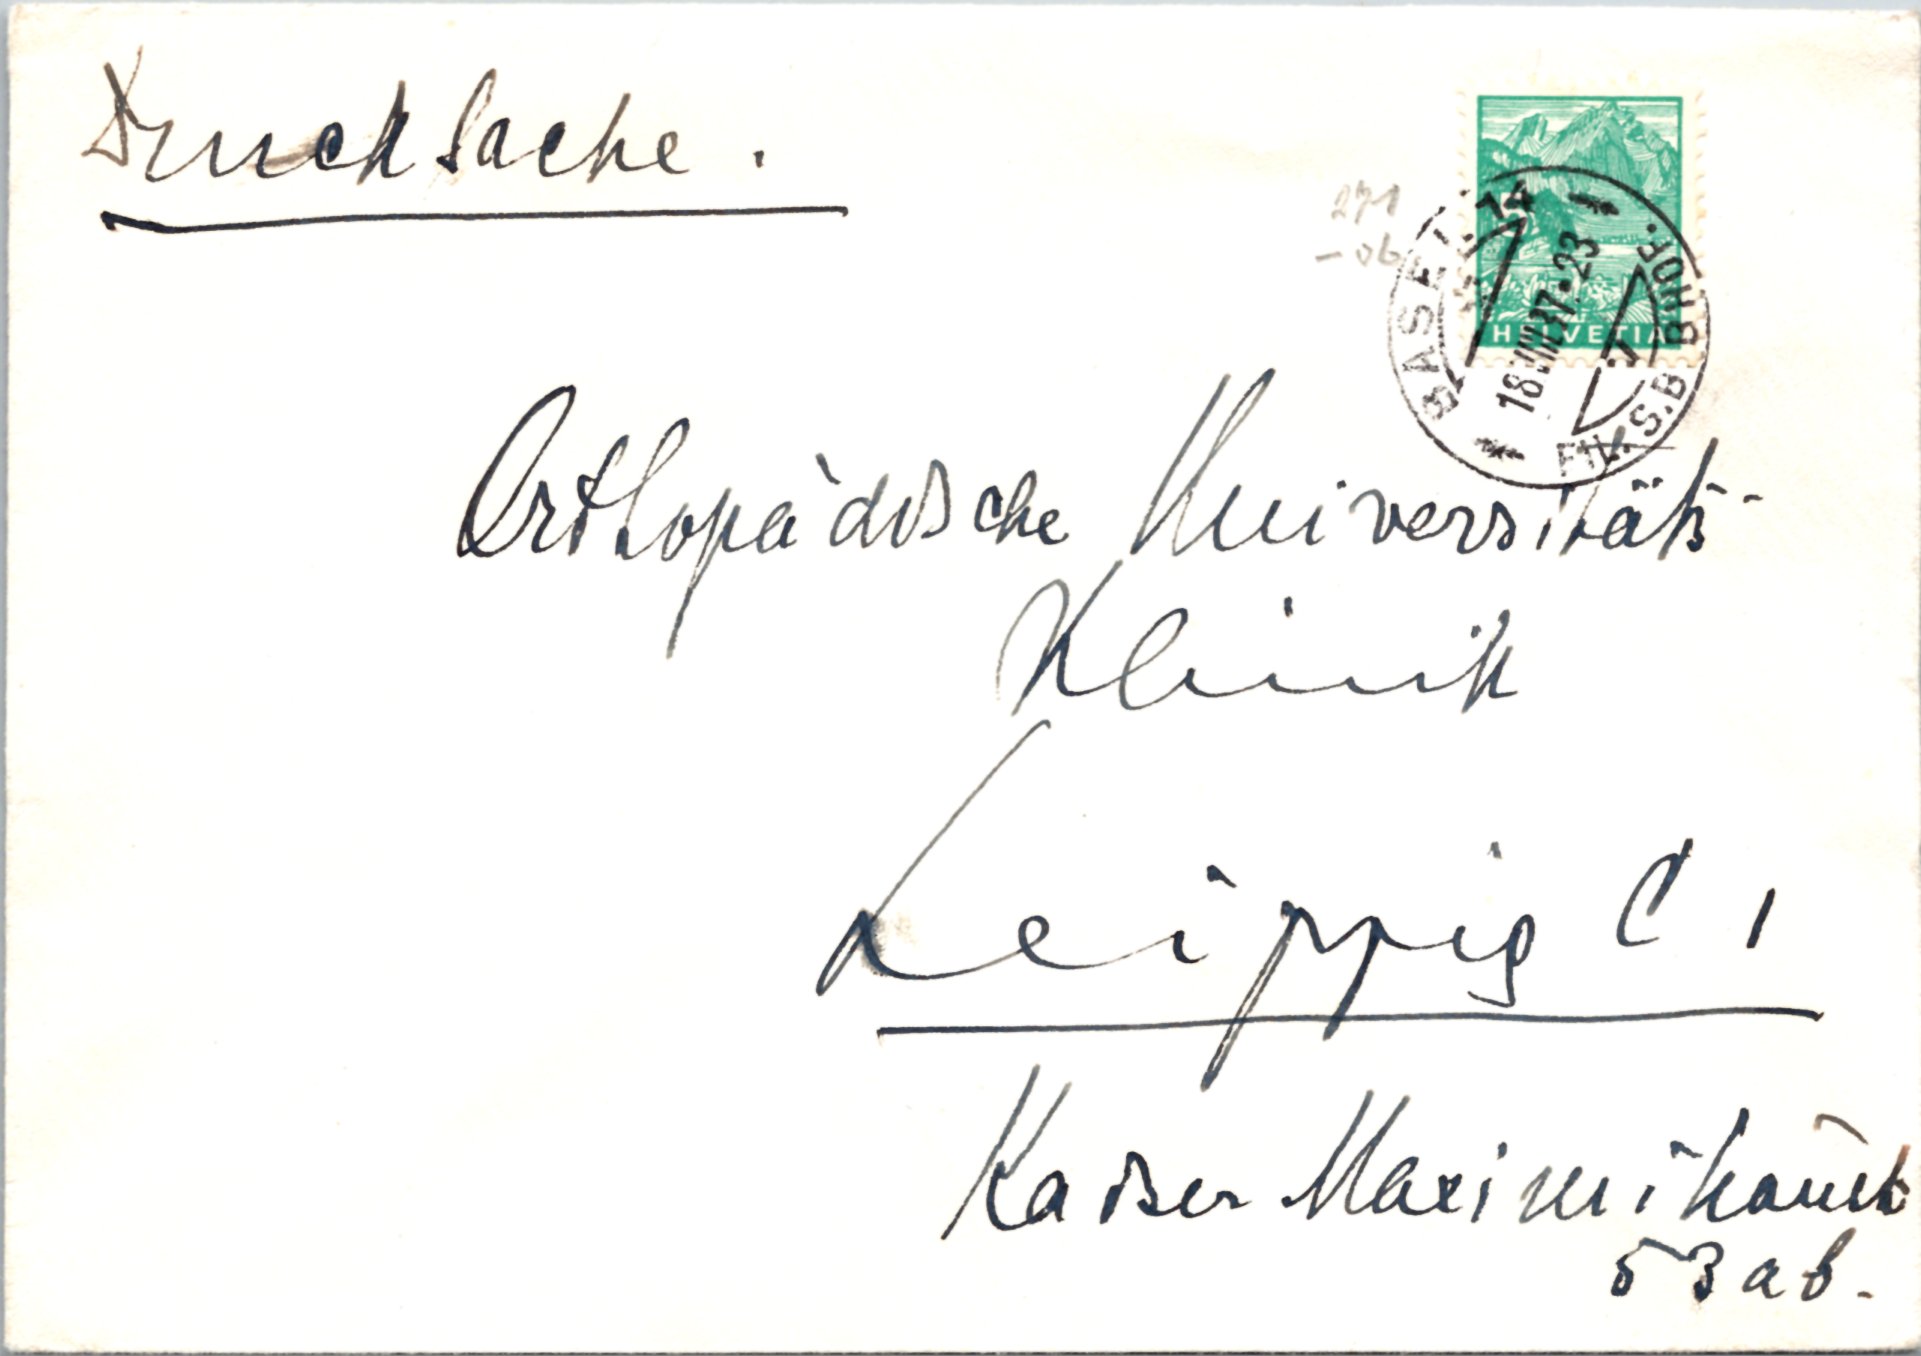 Drucksache.
271
-06
5
HELVETIA
BASEL 14
18.VIII.37-23
FIL. S.B.BHOF.
Orthopädische Universitäts-
Klinik
Leipzig C 1
Kaiser Maximilianstr
53 ab.